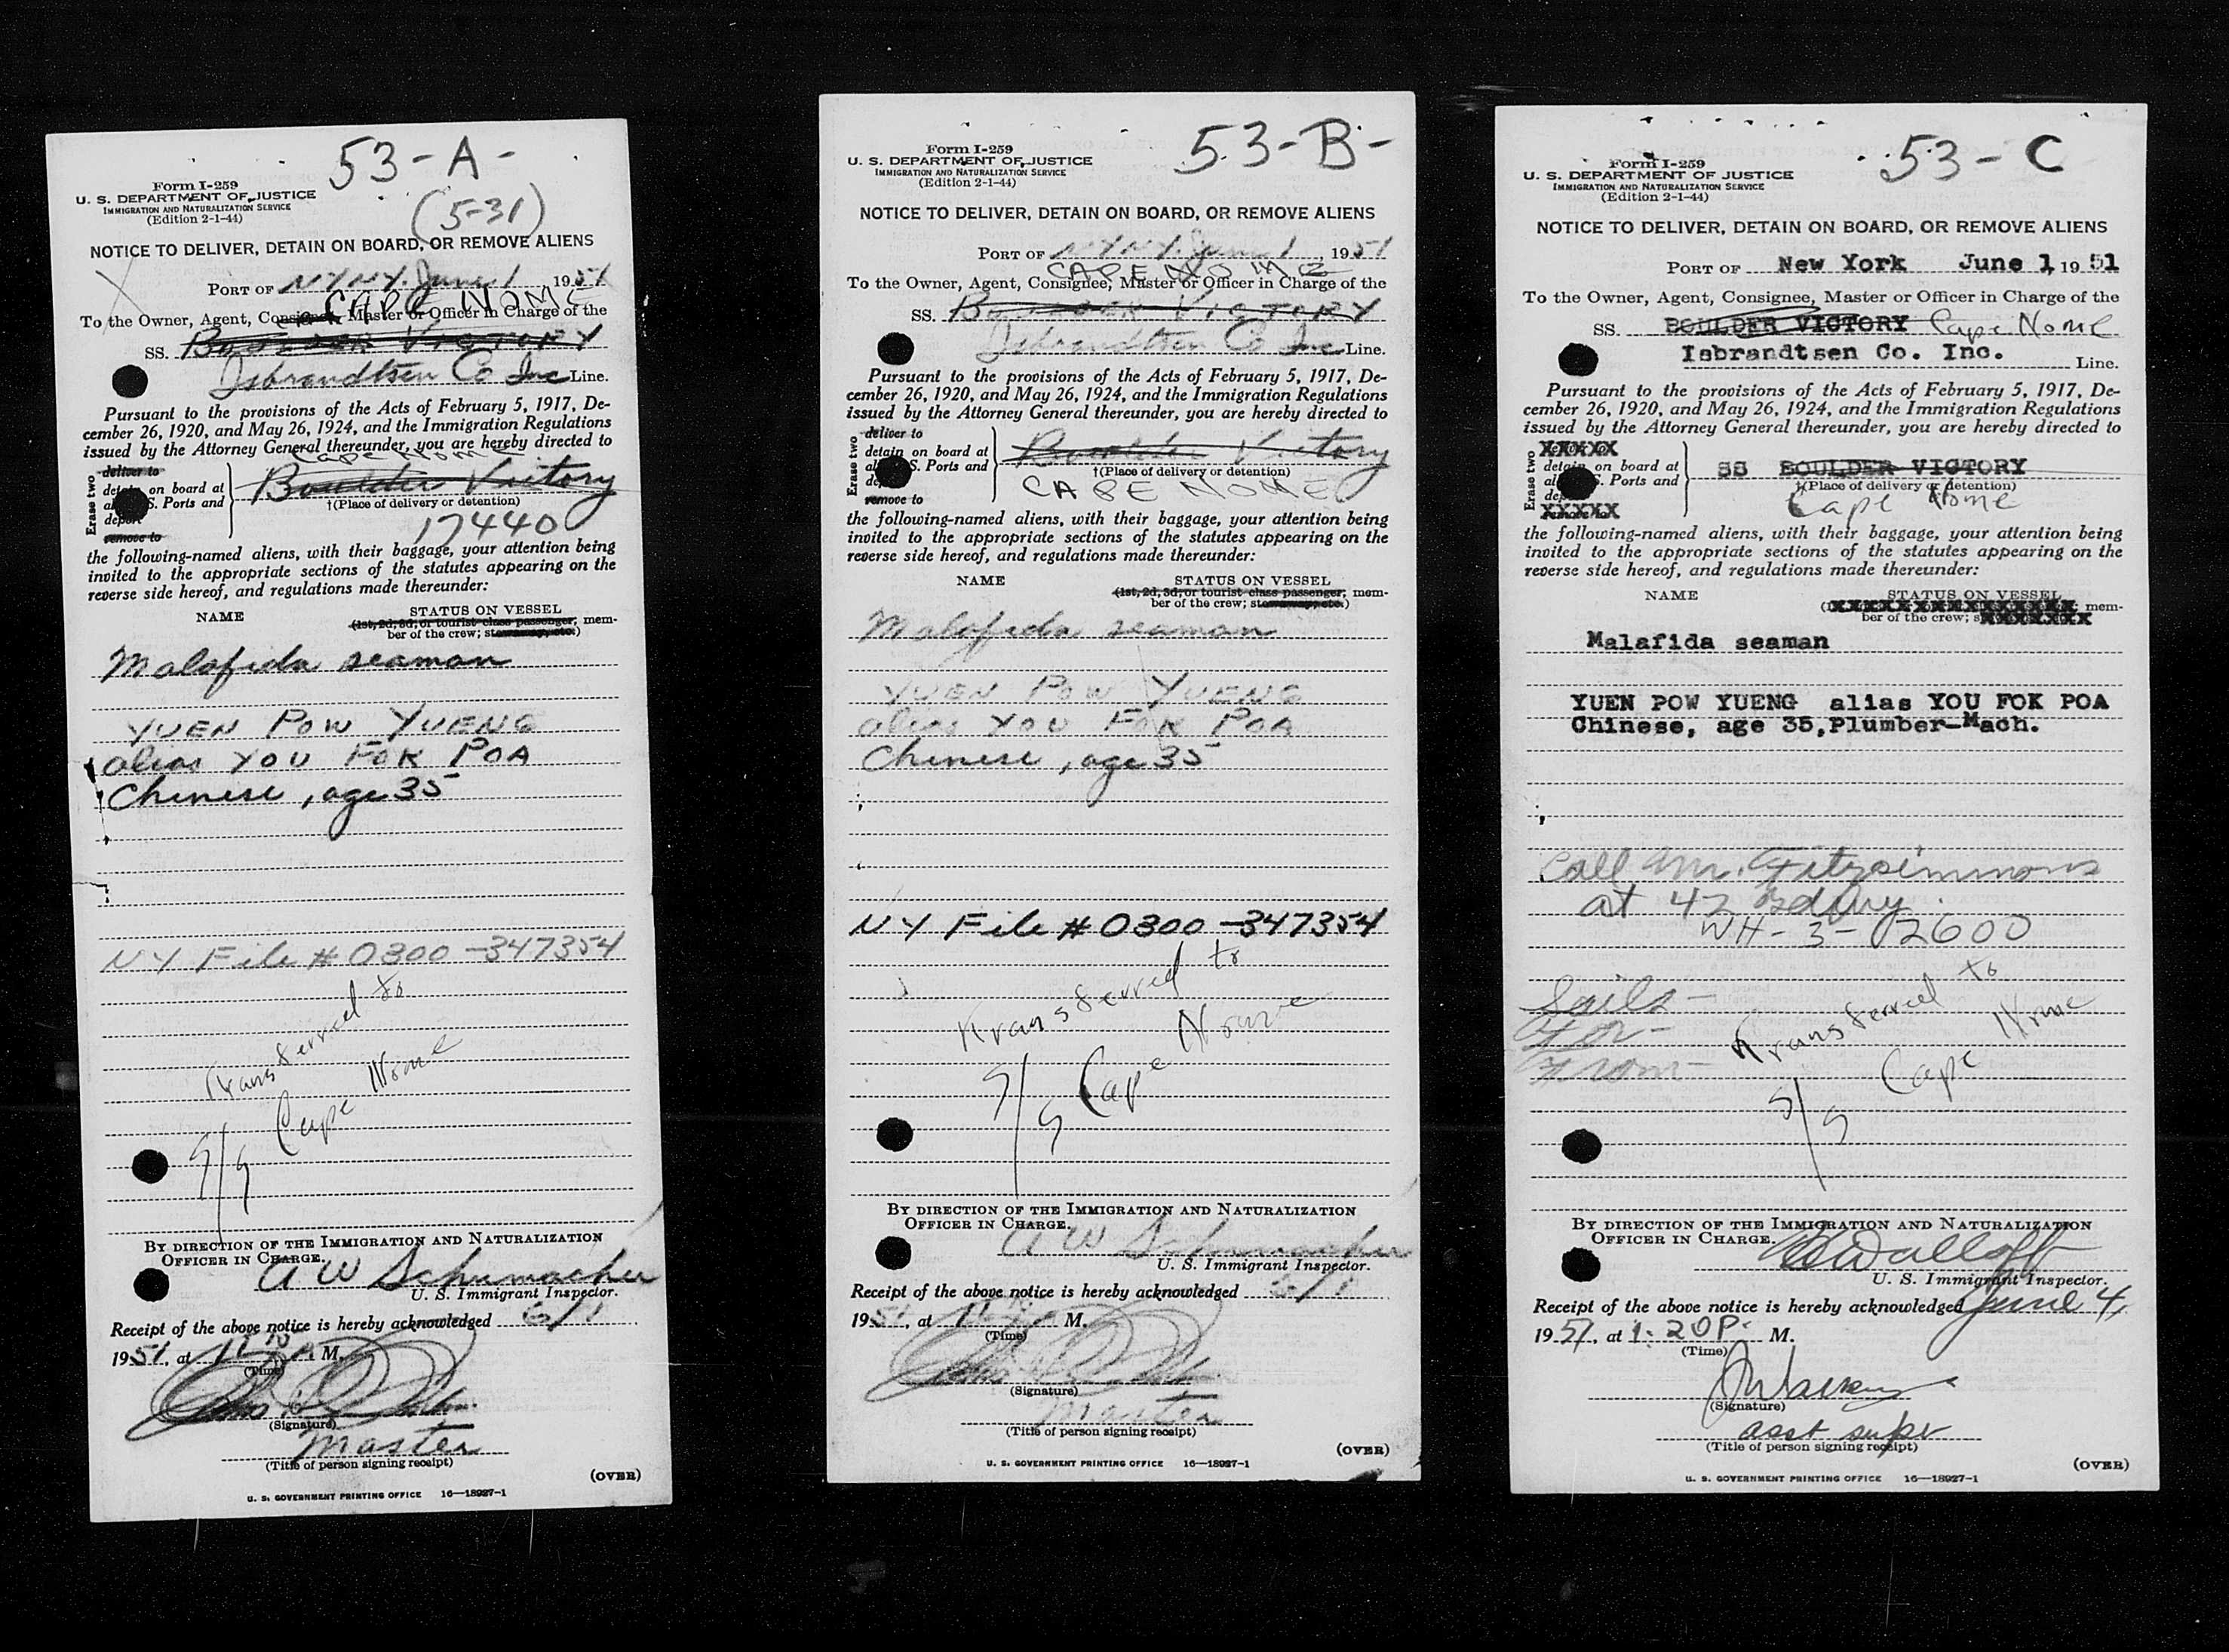 53-A-
Form I-259
U. S. DEPARTMENT OF JUSTICE
IMMIGRATION AND NATURALIZATION SERVICE
(Edition 2-1-44)
(5-31)
NOTICE TO DELIVER, DETAIN ON BOARD, OR REMOVE ALIENS
PORT OF NYNY. June 1 1951
CAPE NOME
To the Owner, Agent, Consignee, Master or Officer in Charge of the
SS. BOULDER VICTORY
Isbrandtsen Co Inc Line.
Pursuant to the provisions of the Acts of February 5, 1917, De-
cember 26, 1920, and May 26, 1924, and the Immigration Regulations
issued by the Attorney General thereunder, you are hereby directed to
Cape Nome
Erase two
deliver to
on board at
S. Ports and
deport
remove to
Boulder Victory
†(Place of delivery or detention)
17440
the following-named aliens, with their baggage, your attention being
invited to the appropriate sections of the statutes appearing on the
reverse side hereof, and regulations made thereunder:
NAME STATUS ON VESSEL
(1st, 2d, 3d, or tourist class passenger; mem-
ber of the crew; stowaway, etc.)
Malafida seaman
YUEN POW YUENG
alias YOU FOK POA
Chinese, age 35
NY File # 0300-347354
Transferred to
S/S Cape Nome
BY DIRECTION OF THE IMMIGRATION AND NATURALIZATION
OFFICER IN CHARGE.
A W Schumacher
U. S. Immigrant Inspector.
Receipt of the above notice is hereby acknowledged 6/1
1951, at M.
(Time)
(Signature)
Master
(Title of person signing receipt)
(OVER)
U. S. GOVERNMENT PRINTING OFFICE 16—18927-1
53-B-
Form I-259
U. S. DEPARTMENT OF JUSTICE
IMMIGRATION AND NATURALIZATION SERVICE
(Edition 2-1-44)
NOTICE TO DELIVER, DETAIN ON BOARD, OR REMOVE ALIENS
PORT OF NYNY. June 1, 1951
CAPE NOME
To the Owner, Agent, Consignee, Master or Officer in Charge of the
SS. BOULDER VICTORY
Isbrandtsen Co Inc Line.
Pursuant to the provisions of the Acts of February 5, 1917, De-
cember 26, 1920, and May 26, 1924, and the Immigration Regulations
issued by the Attorney General thereunder, you are hereby directed to
Erase two
deliver to
detain on board at
S. Ports and
remove to
Boulder Victory
†(Place of delivery or detention)
CAPE NOME
the following-named aliens, with their baggage, your attention being
invited to the appropriate sections of the statutes appearing on the
reverse side hereof, and regulations made thereunder:
NAME STATUS ON VESSEL
(1st, 2d, 3d, or tourist class passenger; mem-
ber of the crew; stowaway, etc.)
Malafida seaman
YUEN POW YUENG
alias YOU FOK POA
Chinese, age 35
NY File # 0300-347354
Transferred to
S/S Cape Nome
BY DIRECTION OF THE IMMIGRATION AND NATURALIZATION
OFFICER IN CHARGE.
A W Schumacher
U. S. Immigrant Inspector.
Receipt of the above notice is hereby acknowledged 6/1
1951, at M.
(Time)
(Signature)
Master
(Title of person signing receipt)
(OVER)
U. S. GOVERNMENT PRINTING OFFICE 16—18927-1
53-C
Form I-259
U. S. DEPARTMENT OF JUSTICE
IMMIGRATION AND NATURALIZATION SERVICE
(Edition 2-1-44)
NOTICE TO DELIVER, DETAIN ON BOARD, OR REMOVE ALIENS
PORT OF New York June 1, 1951
To the Owner, Agent, Consignee, Master or Officer in Charge of the
SS. BOULDER VICTORY Cape Nome
Isbrandtsen Co. Inc. Line.
Pursuant to the provisions of the Acts of February 5, 1917, De-
cember 26, 1920, and May 26, 1924, and the Immigration Regulations
issued by the Attorney General thereunder, you are hereby directed to
Erase two
XXXXX
detain on board at
S. Ports and
XXXXX
SS BOULDER VICTORY
†(Place of delivery or detention)
Cape Nome
the following-named aliens, with their baggage, your attention being
invited to the appropriate sections of the statutes appearing on the
reverse side hereof, and regulations made thereunder:
NAME STATUS ON VESSEL
mem-
ber of the crew;
Malafida seaman
YUEN POW YUENG alias YOU FOK POA
Chinese, age 35,Plumber-Mach.
Call Mr. Fitzsimmons
at 42 Bdwy.
WH-3-02600
Sails-
For-
From-
Transferred to
S/S Cape Nome
BY DIRECTION OF THE IMMIGRATION AND NATURALIZATION
OFFICER IN CHARGE.
U. S. Immigrant Inspector.
Receipt of the above notice is hereby acknowledged June 4,
1951, at 1:20P. M.
(Time)
(Signature)
asst supr
(Title of person signing receipt)
(OVER)
U. S. GOVERNMENT PRINTING OFFICE 16—18927-1